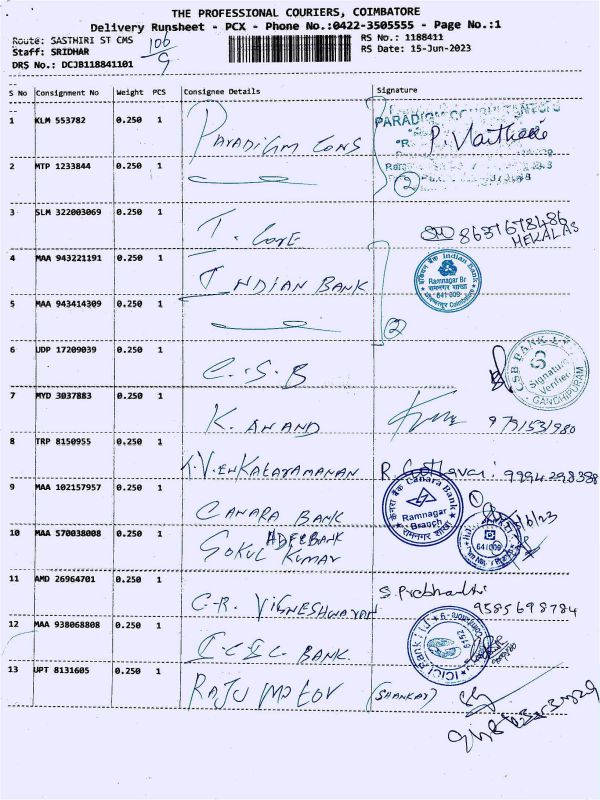 THE PROFESSIONAL COURIERS, COIMBATORE
Delivery Runsheet - PCX - Phone No.:0422-3505555 - Page No.:1
Route: SASTHIRI ST CMS
Staff: SRIDHAR
DRS No.: DCJB118841101
106/9
RS No.: 1188411
RS Date: 15-Jun-2023
S No Consignment No Weight PCS Consignee Details Signature
1 KLM 553782 0.250 1 PARADIGM CONS PARADIGM
2 MTP 1233844 0.250 1 2
3 SLM 322003069 0.250 1 8637678486
MEKALAS
4 MAA 943221191 0.250 1 INDIAN BANK Indian Bank Ramnagar Br रामनगर शाखा 641 009 Coimbatore
5 MAA 943414309 0.250 1 2
6 UDP 17209039 0.250 1 C.S.B CSB BANK Signature Verifier GANDHIPURAM
7 MYD 3037883 0.250 1 K. ANAND 9791531980
8 TRP 8150955 0.250 1 K.VENKATARAMANAN 9994298388
9 MAA 102157957 0.250 1 CANARA BANK केनरा बैंक Canara Bank Ramnagar Branch रामनगर शाखा 1
10 MAA 570038008 0.250 1 HDFC BANK
GOKUL KUMAR
11 AMD 26964701 0.250 1 C.R. VIGNESHWARAN 9585698784
12 MAA 938068808 0.250 1 I.C.I.C. BANK ICICI Bank Ltd
13 UPT 8131605 0.250 1 RAJU MOTOR (SHANKAR)